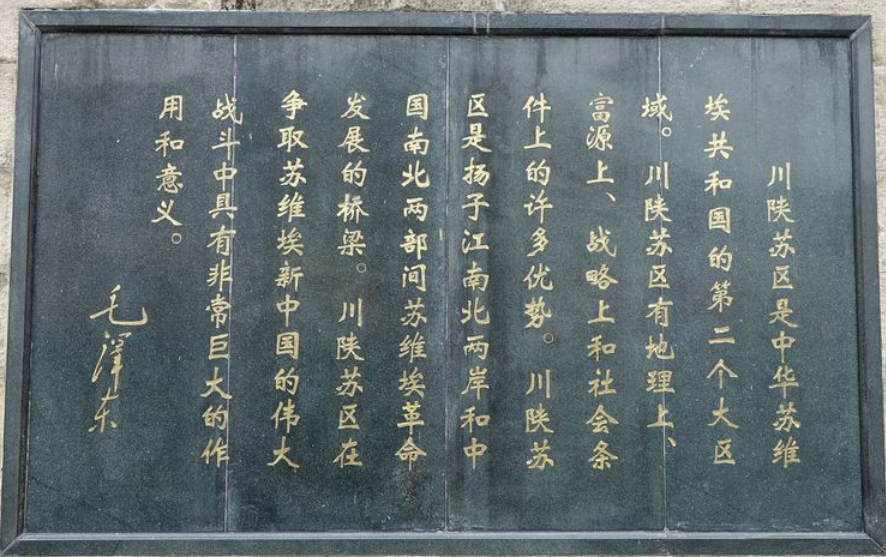 川陕苏区是中华苏维
埃共和国的第二个大区
域。川陕苏区有地理上、
富源上、战略上和社会条
件上的许多优势。川陕苏
区是扬子江南北两岸和中
国南北两部间苏维埃革命
发展的桥梁。川陕苏区在
争取苏维埃新中国的伟大
战斗中具有非常巨大的作
用和意义。
毛泽东